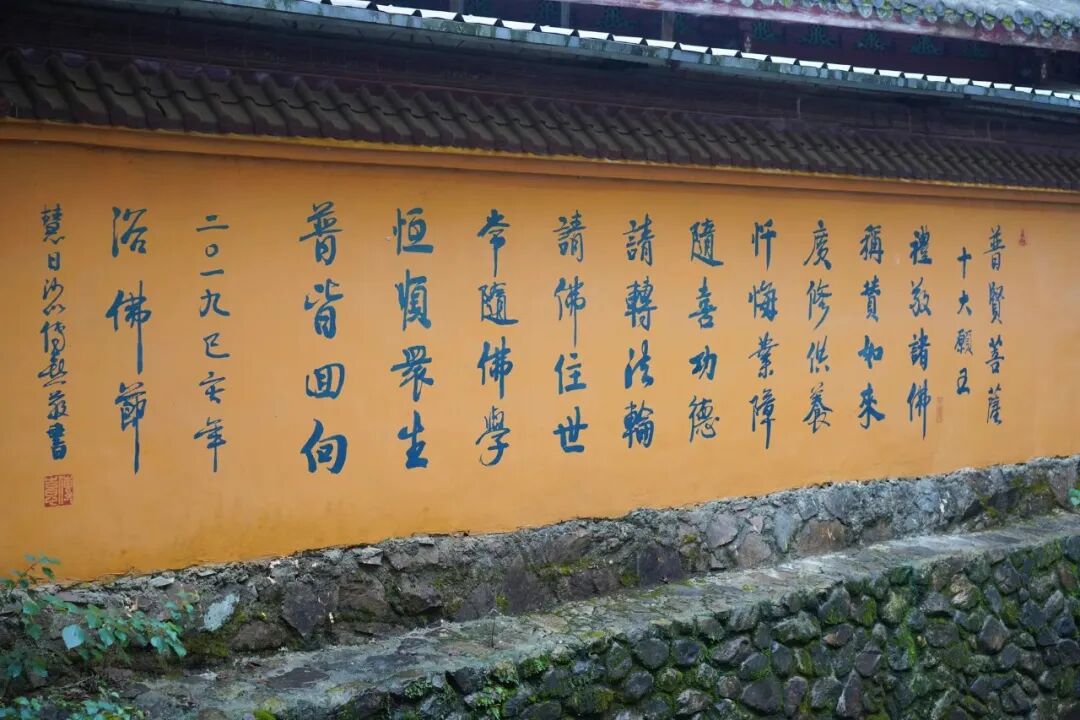 普賢菩薩
十大願王
禮敬諸佛
稱贊如來
廣修供養
忏悔業障
隨喜功德
請轉法輪
請佛住世
常隨佛學
恒順眾生
普皆回向
二〇一九己亥年
浴佛節
慧日沙門傳熹敬書